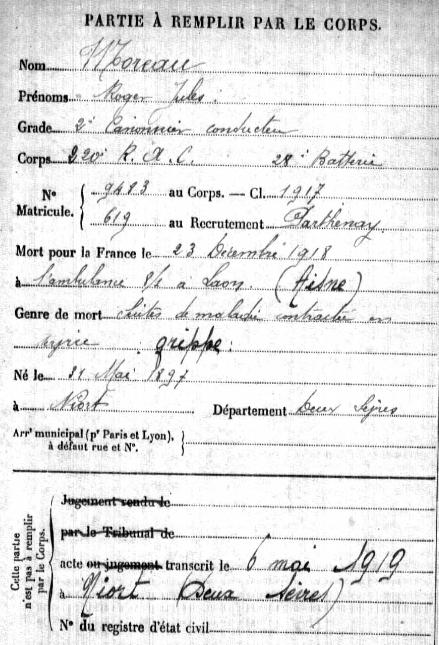 PARTIE À REMPLIR PAR LE CORPS.
Nom Moreau
Prénoms Roger Jules.
Grade 2e Canonnier conducteur
Corps 220e R. A. C. 28e Batterie
No Matricule. 9483 au Corps. — Cl. 1917
619 au Recrutement Parthenay
Mort pour la France le 23 Décembre 1918
à l'ambulance 8/2 à Laon (Aisne)
Genre de mort Suites de maladie contractée en
grippe.
Né le 21 Mai 1897
à Niort Département Deux Sèvres
Arrt municipal (pr Paris et Lyon),
à défaut rue et No.
Cette partie n'est pas à remplir par le Corps.
Jugement rendu le
par le Tribunal de
acte ou jugement transcrit le 6 mai 1919
à Niort (Deux Sèvres)
No du registre d'état civil